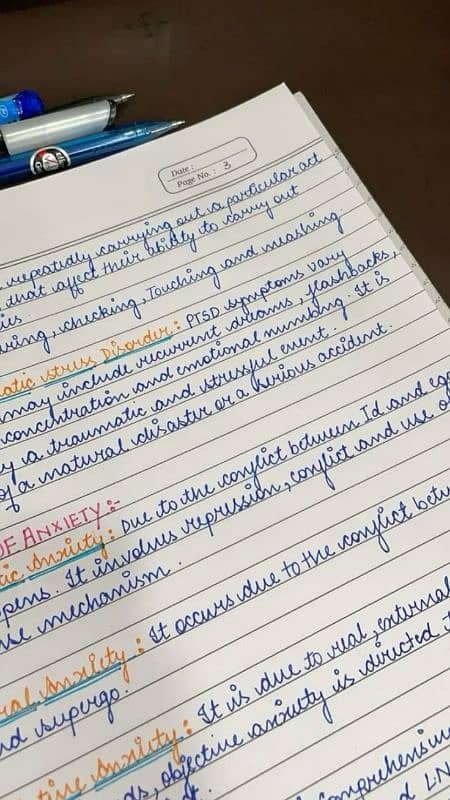 Date :
Page No. : 3
repeatedly carrying out a particular act
that affect their ability to carry out
checking, Touching and washing.
stress Disorder : PTSD symptoms vary
may include recurrent dreams, flashbacks,
concentration and emotional numbing. It is
by a traumatic and stressful event.
of a natural disaster or a serious accident.
OF ANXIETY :-
Anxiety : Due to the conflict between Id and ego
It involves repression, conflict and use o
mechanism.
Anxiety : It occurs due to the conflict betw
nd supergo.
Anxiety : It is due to real, external
ds, objective anxiety is directed t
omprehensive
LN